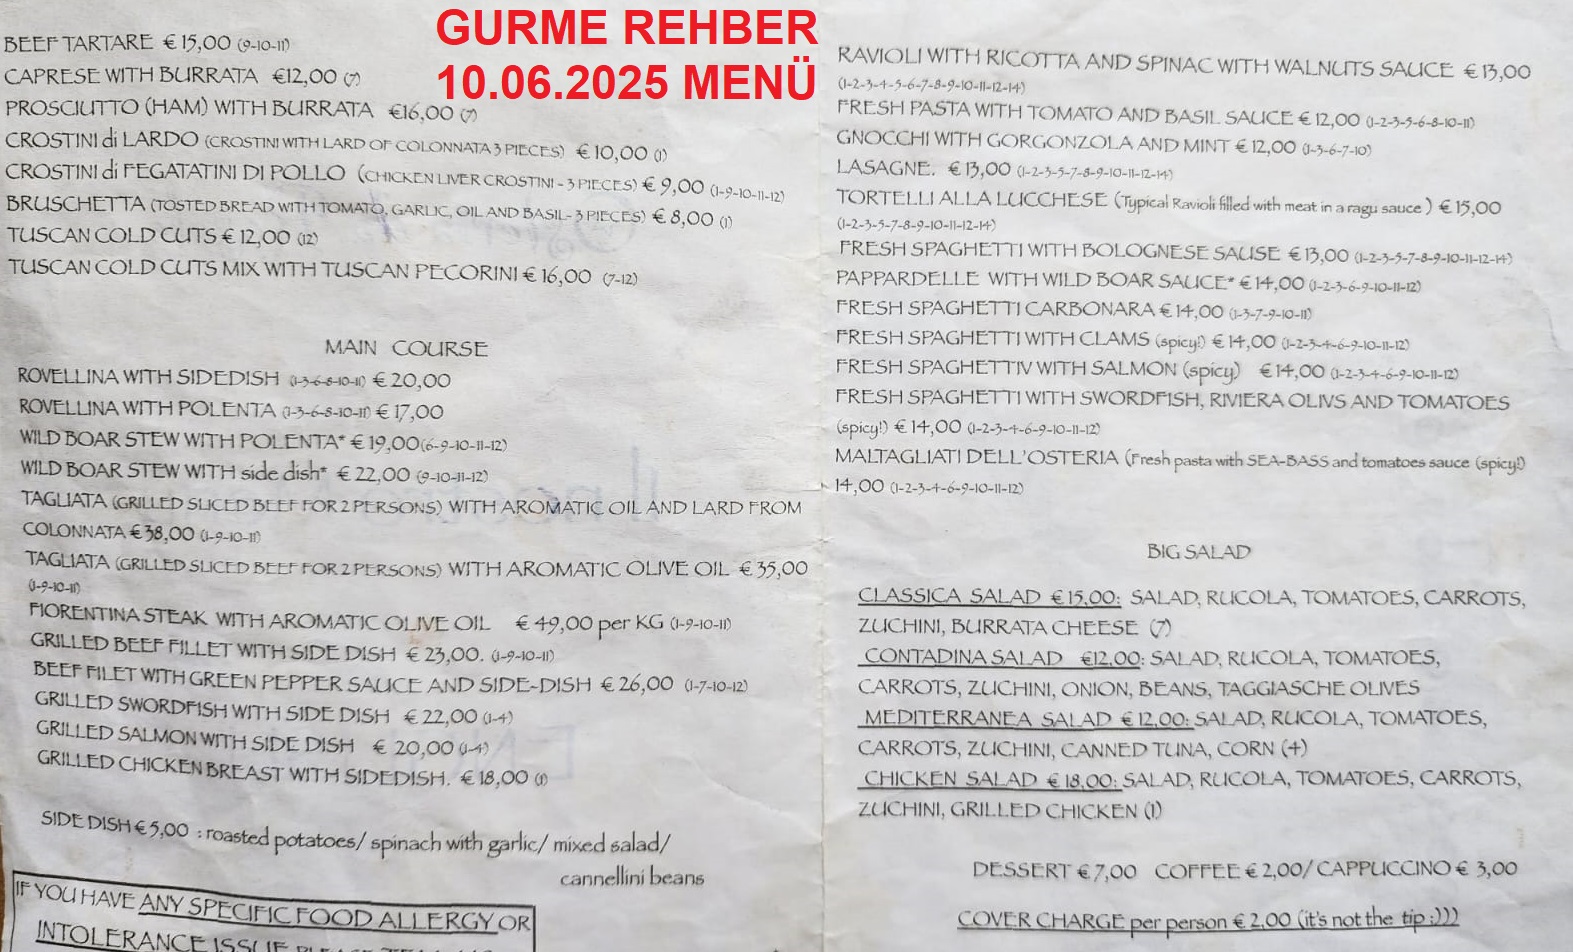 GURME REHBER
10.06.2025 MENÜ
BEEF TARTARE € 15,00 (9-10-11)
CAPRESE WITH BURRATA €12,00 (7)
PROSCIUTTO (HAM) WITH BURRATA €16,00 (7)
CROSTINI di LARDO (CROSTINI WITH LARD OF COLONNATA 3 PIECES) € 10,00 (1)
CROSTINI di FEGATATINI DI POLLO (CHICKEN LIVER CROSTINI - 3 PIECES) € 9,00 (1-9-10-11-12)
BRUSCHETTA (TOSTED BREAD WITH TOMATO, GARLIC, OIL AND BASIL- 3 PIECES) € 8,00 (1)
TUSCAN COLD CUTS € 12,00 (12)
TUSCAN COLD CUTS MIX WITH TUSCAN PECORINI € 16,00 (7-12)
MAIN COURSE
ROVELLINA WITH SIDEDISH (1-3-6-8-10-11) € 20,00
ROVELLINA WITH POLENTA (1-3-6-8-10-11) € 17,00
WILD BOAR STEW WITH POLENTA* € 19,00(6-9-10-11-12)
WILD BOAR STEW WITH side dish* € 22,00 (9-10-11-12)
TAGLIATA (GRILLED SLICED BEEF FOR 2 PERSONS) WITH AROMATIC OIL AND LARD FROM
COLONNATA € 38,00 (1-9-10-11)
TAGLIATA (GRILLED SLICED BEEF FOR 2 PERSONS) WITH AROMATIC OLIVE OIL € 35,00
(1-9-10-11)
FIORENTINA STEAK WITH AROMATIC OLIVE OIL € 49,00 per KG (1-9-10-11)
GRILLED BEEF FILLET WITH SIDE DISH € 23,00. (1-9-10-11)
BEEF FILET WITH GREEN PEPPER SAUCE AND SIDE-DISH € 26,00 (1-7-10-12)
GRILLED SWORDFISH WITH SIDE DISH € 22,00 (1-4)
GRILLED SALMON WITH SIDE DISH € 20,00 (1-4)
GRILLED CHICKEN BREAST WITH SIDEDISH. € 18,00 (1)
SIDE DISH € 5,00 : roasted potatoes/ spinach with garlic/ mixed salad/
cannellini beans
IF YOU HAVE ANY SPECIFIC FOOD ALLERGY OR
INTOLERANCE ISSUE
RAVIOLI WITH RICOTTA AND SPINAC WITH WALNUTS SAUCE € 13,00
(1-2-3-4-5-6-7-8-9-10-11-12-14)
FRESH PASTA WITH TOMATO AND BASIL SAUCE € 12,00 (1-2-3-5-6-8-10-11)
GNOCCHI WITH GORGONZOLA AND MINT € 12,00 (1-3-6-7-10)
LASAGNE. € 13,00 (1-2-3-5-7-8-9-10-11-12-14)
TORTELLI ALLA LUCCHESE (Typical Ravioli filled with meat in a ragu sauce ) € 15,00
(1-2-3-5-7-8-9-10-11-12-14)
FRESH SPAGHETTI WITH BOLOGNESE SAUSE € 13,00 (1-2-3-5-7-8-9-10-11-12-14)
PAPPARDELLE WITH WILD BOAR SAUCE* € 14,00 (1-2-3-6-9-10-11-12)
FRESH SPAGHETTI CARBONARA € 14,00 (1-3-7-9-10-11)
FRESH SPAGHETTI WITH CLAMS (spicy!) € 14,00 (1-2-3-4-6-9-10-11-12)
FRESH SPAGHETTIV WITH SALMON (spicy) € 14,00 (1-2-3-4-6-9-10-11-12)
FRESH SPAGHETTI WITH SWORDFISH, RIVIERA OLIVS AND TOMATOES
(spicy!) € 14,00 (1-2-3-4-6-9-10-11-12)
MALTAGLIATI DELL'OSTERIA (Fresh pasta with SEA-BASS and tomatoes sauce (spicy!)
14,00 (1-2-3-4-6-9-10-11-12)
BIG SALAD
CLASSICA SALAD € 15,00: SALAD, RUCOLA, TOMATOES, CARROTS,
ZUCHINI, BURRATA CHEESE (7)
CONTADINA SALAD €12,00: SALAD, RUCOLA, TOMATOES,
CARROTS, ZUCHINI, ONION, BEANS, TAGGIASCHE OLIVES
MEDITERRANEA SALAD € 12,00: SALAD, RUCOLA, TOMATOES,
CARROTS, ZUCHINI, CANNED TUNA, CORN (4)
CHICKEN SALAD € 18,00: SALAD, RUCOLA, TOMATOES, CARROTS,
ZUCHINI, GRILLED CHICKEN (1)
DESSERT € 7,00 COFFEE € 2,00/ CAPPUCCINO € 3,00
COVER CHARGE per person € 2,00 (it's not the tip ;)))